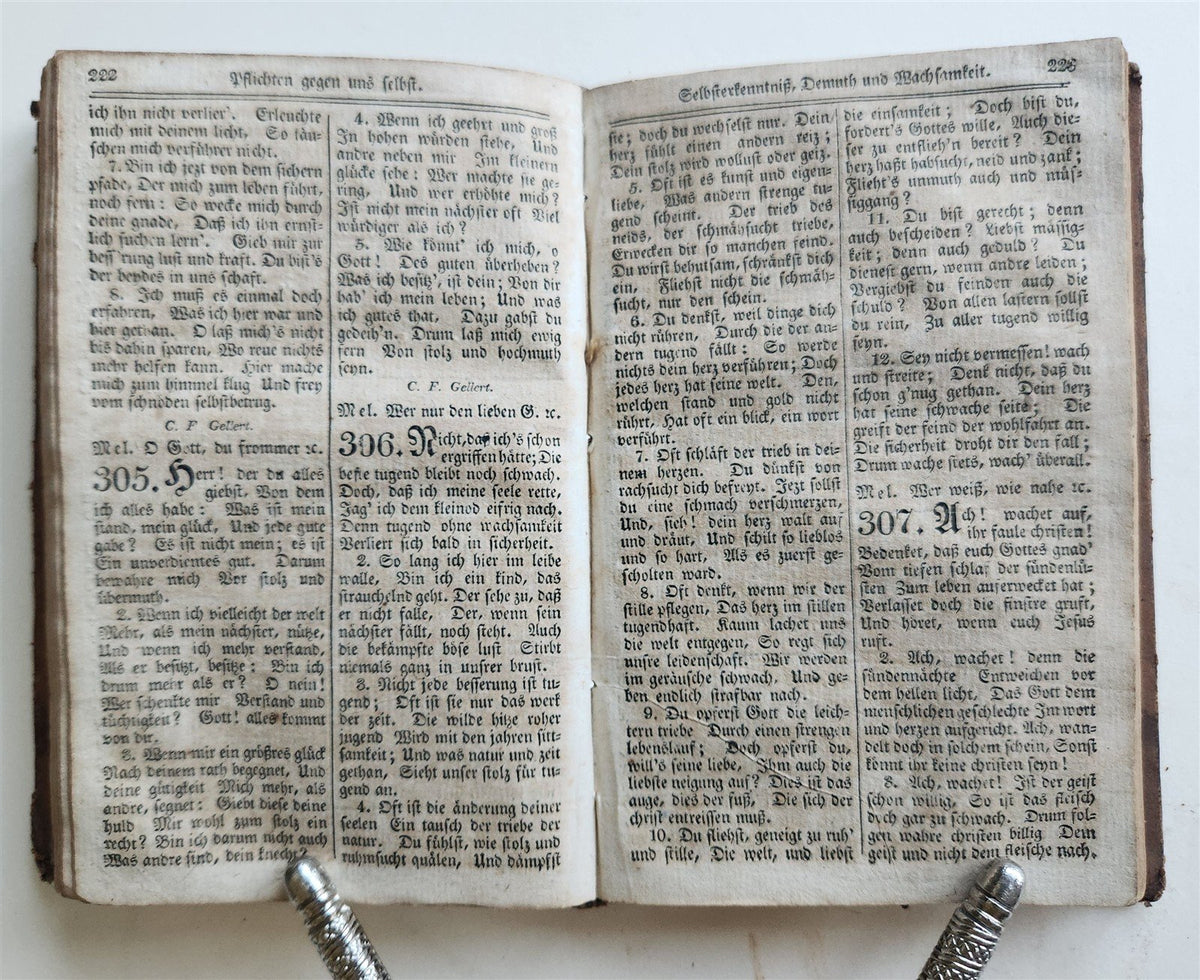 222
Pflichten gegen uns selbst.
ich ihn nicht verlier'. Erleuchte
mich mit deinem licht, So täu-
schen mich verführer nicht.
7. Bin ich jezt von dem sichern
pfade, Der mich zum leben führt,
noch fern: So wecke mich durch
deine gnade, Daß ich ihn ernst-
lich suchen lern'. Gieb mir zur
bess'rung lust und kraft. Du bist's
der beydes in uns schaft.
8. Ich muß es einmal doch
erfahren, Was ich hier war und
hier gethan. O laß mich's nicht
bis dahin sparen, Wo reue nichts
mehr helfen kann. Hier mache
mich zum himmel klug Und frey
vom schnöden selbstbetrug.
C. F Gellert.
Mel. O Gott, du frommer ꝛc.
305. Herr! der du alles
giebst, Von dem
ich alles habe: Was ist mein
stand, mein glück, Und jede gute
gabe? Es ist nicht mein; es ist
Ein unverdientes gut. Darum
bewahre mich Vor stolz und
übermuth.
2. Wenn ich vielleicht der welt
Mehr, als mein nächster, nütze,
Und wenn ich mehr verstand,
Als er besitzt, besitze: Bin ich
drum mehr als er? O nein!
Wer schenkte mir Verstand und
tüchtigkeit? Gott! alles kommt
von dir.
3. Wenn mir ein größres glück
Nach deinem rath begegnet, Und
deine gütigkeit Mich mehr, als
andre, segnet: Giebt diese deine
huld Mir wohl zum stolz ein
recht? Bin ich darum nicht auch
Was andre sind, dein knecht?
4. Wenn ich geehrt und groß
In hohen würden stehe, Und
andre neben mir Im kleinern
glücke sehe: Wer machte sie ge-
ring, Und wer erhöhte mich?
Ist nicht mein nächster oft Viel
würdiger als ich?
5. Wie könnt' ich mich, o
Gott! Des guten überheben?
Was ich besitz', ist dein; Von dir
hab' ich mein leben; Und was
ich gutes that, Dazu gabst du
gedeih'n. Drum laß mich ewig
fern Von stolz und hochmuth
seyn.
C. F. Gellert.
Mel. Wer nur den lieben G. ꝛc.
306. Nicht, daß ich's schon
ergriffen hätte; Die
beste tugend bleibt noch schwach.
Doch, daß ich meine seele rette,
Jag' ich dem kleinod eifrig nach.
Denn tugend ohne wachsamkeit
Verliert sich bald in sicherheit.
2. So lang ich hier im leibe
walle, Bin ich ein kind, das
strauchelnd geht. Der sehe zu, daß
er nicht falle, Der, wenn sein
nächster fällt, noch steht. Auch
die bekämpfte böse lust Stirbt
niemals ganz in unsrer brust.
3. Nicht jede besserung ist tu-
gend; Oft ist sie nur das werk
der zeit. Die wilde hitze roher
jugend Wird mit den jahren sitt-
samkeit; Und was natur und zeit
gethan, Sieht unser stolz für tu-
gend an.
4. Oft ist die änderung deiner
seelen Ein tausch der triebe der
natur. Du fühlst, wie stolz und
ruhmsucht quälen, Und dämpfst
Selbsterkenntniß, Demuth und Wachsamkeit.
223
sie; doch du wechselst nur. Dein
herz fühlt einen andern reiz;
Dein stolz wird wollust oder geiz.
5. Oft ist es kunst und eigen-
liebe, Was andern strenge tu-
gend scheint. Der trieb des
neids, der schmähsucht triebe,
Erwecken dir so manchen feind.
Du wirst behutsam, schränkst dich
ein, Fliehst nicht die schmäh-
sucht, nur den schein.
6. Du denkst, weil dinge dich
nicht rühren, Durch die der an-
dern tugend fällt: So werde
nichts dein herz verführen; Doch
jedes herz hat seine welt. Den,
welchen stand und gold nicht
rührt, Hat oft ein blick, ein wort
verführt.
7. Oft schläft der trieb in dei-
nem herzen. Du dünkst von
rachsucht dich befreyt. Jezt sollst
du eine schmach verschmerzen,
Und, sieh! dein herz walt auf
und dräut, Und schilt so lieblos
und so hart, Als es zuerst ge-
scholten ward.
8. Oft denkt, wenn wir der
stille pflegen, Das herz im stillen
tugendhaft. Kaum lachet uns
die welt entgegen, So regt sich
unsre leidenschaft. Wir werden
im geräusche schwach, Und ge-
ben endlich strafbar nach.
9. Du opferst Gott die leich-
tern triebe Durch einen strengen
lebenslauf; Doch opferst du,
will's seine liebe, Ihm auch die
liebste neigung auf? Dies ist das
auge, dies der fuß, Die sich der
christ entreissen muß.
10. Du fliehst, geneigt zu ruh'
und stille, Die welt, und liebst
die einsamkeit; Doch bist du,
fordert's Gottes wille, Auch die-
ser zu entflieh'n bereit? Dein
herz haßt habsucht, neid und zank;
Flieht's unmuth auch und müs-
siggang?
11. Du bist gerecht; denn
auch bescheiden? Liebst mäßig-
keit; denn auch geduld? Du
dienest gern, wenn andre leiden;
Vergiebst du feinden auch die
schuld? Von allen lastern sollst
du rein, Zu aller tugend willig
seyn.
12. Sey nicht vermessen! wach
und streite; Denk nicht, daß du
schon g'nug gethan. Dein herz
hat seine schwache seite; Die
greift der feind der wohlfahrt an.
Die sicherheit droht dir den fall;
Drum wache stets, wach' überall.
Mel. Wer weiß, wie nahe ꝛc.
307. Ach! wachet auf,
ihr faule christen!
Bedenket, daß euch Gottes gnad'
Vom tiefen schlaf der sündenlü-
sten Zum leben auferwecket hat;
Verlasset doch die finstre gruft,
Und höret, wenn euch Jesus
ruft.
2. Ach, wachet! denn die
sündennächte Entweichen vor
dem hellen licht, Das Gott dem
menschlichen geschlechte Im wort
und herzen aufgericht. Ach, wan-
delt doch in solchem schein, Sonst
könnt ihr keine christen seyn!
3. Ach, wachet! Ist der geist
schon willig, So ist das fleisch
doch gar zu schwach. Drum fol-
gen wahre christen billig Dem
geist und nicht dem fleische nach.